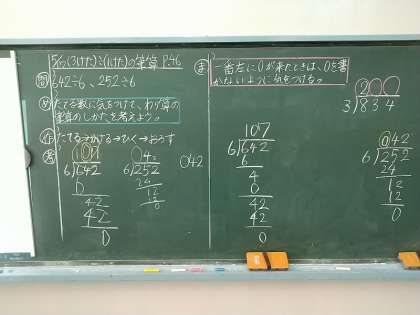 5/6 (3けた)÷(1けた)の筆算 P.46
問 642÷6, 252÷6
め たてる数に気をつけて、わり算の
筆算のしかたを考えよう。
たてる→かける→ひく→おろす
考
107
6)642
6
42
42
0
042
6)252
24
12
12
0
042
ま 一番左に0が来たときは、0を書
かないように気をつける。
107
6)642
6
4
0
42
42
0
2
3)834
042
6)252
24
12
12
0